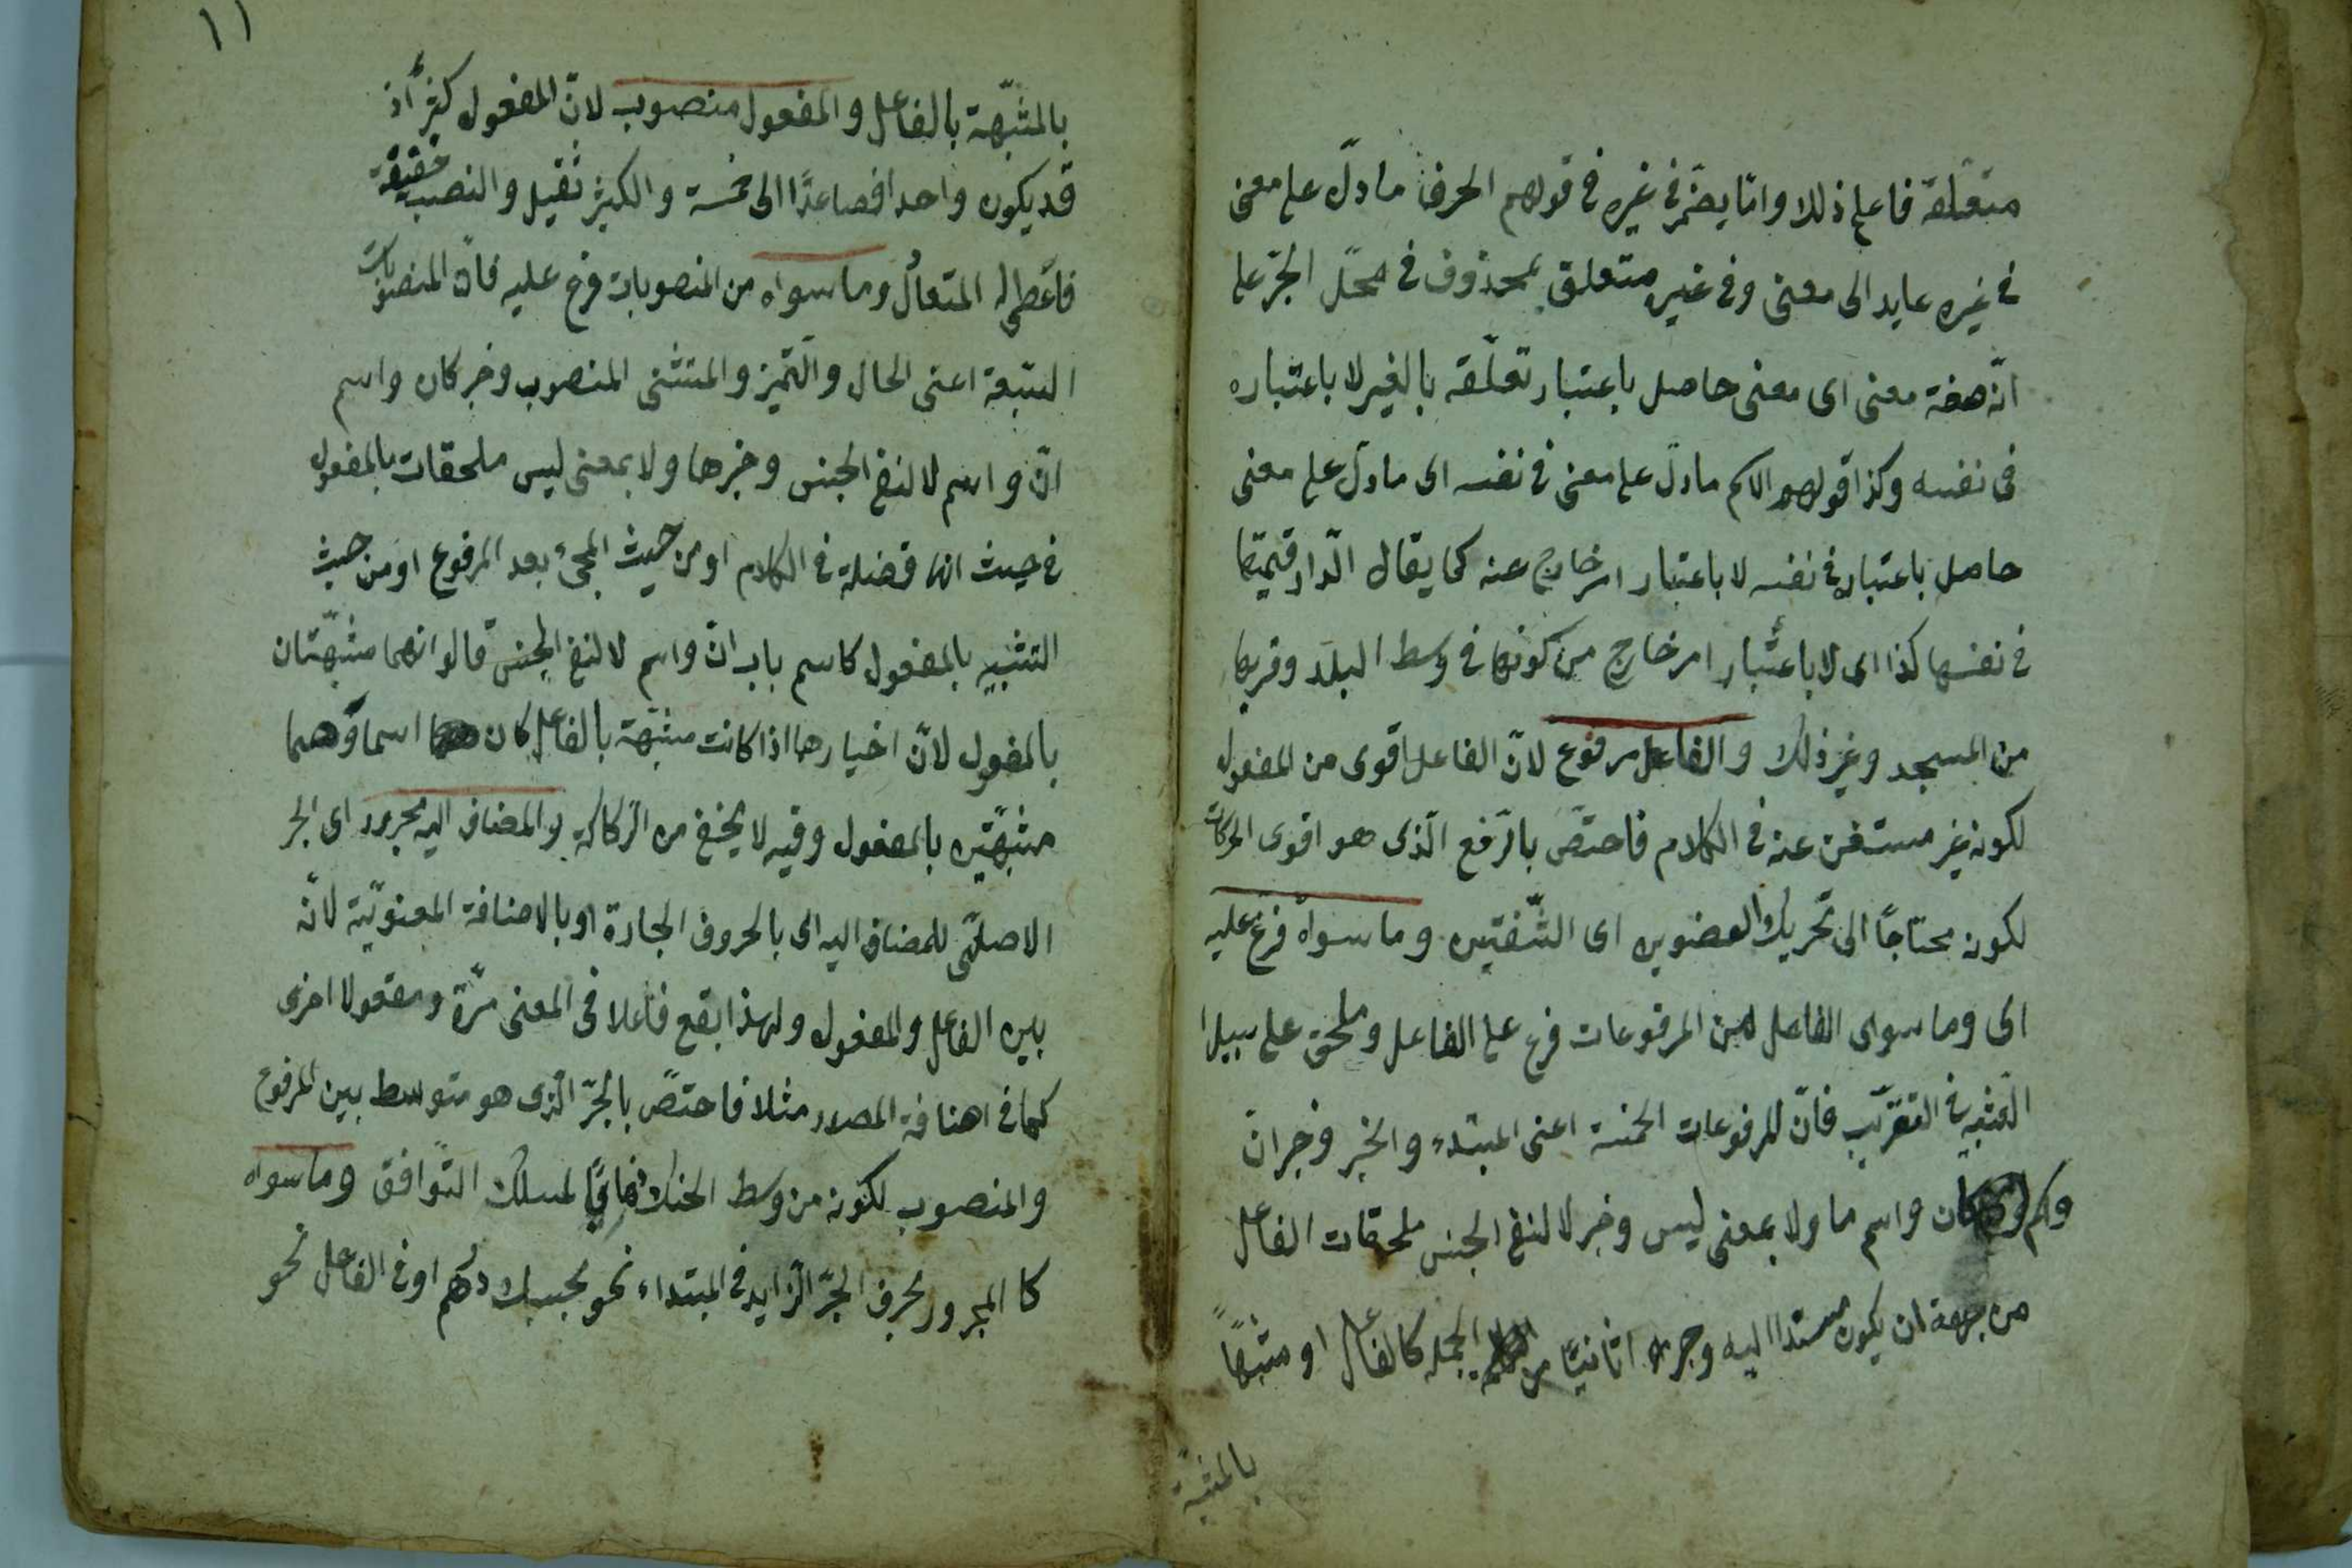 متعلقة فاعل ذلك وانما يضمر في غيره في قولهم الحرف ما دلّ على معنى
في غيره عايد الى معنى وفي غيره متعلق بمحذوف في محلّ الجرّ على
انّه صفة معنى اى معنى حاصل باعتبار تعلّقه بالغير لا باعتباره
فى نفسه وكذا قولهم الاسم ما دلّ على معنى في نفسه اى ما دلّ على معنى
حاصل باعتباره في نفسه لا باعتبار امر خارج عنه كما يقال الدّار قيمتها
في نفسها كذا اى لا باعتبار امر خارج من كونها في وسط البلد وقربها
من المسجد وغير ذلك والفاعل مرفوع لانّ الفاعل اقوى من المفعول
لكونه غير مستغن عنه في الكلام فاختصّ بالرّفع الّذى هو اقوى الحركات
لكونه محتاجًا الى تحريك العضوين اى الشّفتين وما سواه فرع عليه
اى وما سوى الفاعل من المرفوعات فرع على الفاعل وملحق على سبيل
التشبيه في التقريب فانّ المرفوعات الخمسة اعنى المبتدء والخبر وخبر انّ
واسم كان واسم ما ولا بمعنى ليس وخبر لا لنفى الجنس ملحقات الفاعل
من جهة ان يكون مسندا اليه وجزءا ثانيّا من الجملة كالفاعل او مشبّهاً
بالمشبّهة
١١
بالمشبّهة بالفاعل والمفعول منصوب لانّ المفعول كثير أذ
قد يكون واحدا فصاعدًا الى خمسة والكثير ثقيل والنصب خفيفة
فاعطى له المتعادل وما سواه من المنصوبات فرع عليه فانّ المنصوبات
السّبعة اعنى الحال والتّميز والمستثنى المنصوب وخبر كان واسم
انّ واسم لا لنفى الجنس وخبرها ولا بمعنى ليس ملحقات بالمفعول
في حيث انها فضلة في الكلام او من حيث المجىء بعد المرفوع او من حيث
التشبيه بالمفعول كاسم باب انّ واسم لا لنفى الجنس قالوا انهما مشبّهتان
بالمفعول لانّ اخبارهما اذا كانت مشبّهة بالفاعل كان اسماؤهما
مشبّهتين بالمفعول وفيه لا يخفى من الرّكاكة والمضاف اليه مجرور اى الجر
الاصلىّ للمضاف اليه اى بالحروف الجارة او بالاضافة المعنويّة لانّه
بين الفاعل والمفعول ولهذا يقع فاعلا فى المعنى مرّة ومفعولا اخرى
كما في اضافة المصدر مثلا فاختصّ بالجرّ الّذى هو متوسط بين المرفوع
والمنصوب لكونه من وسط الحنك لمسلك التّوافق وما سواه
كا المجرور بحرف الجرّ الزّايد في المبتداء نحو بحسبك درهم او في الفاعل نحو